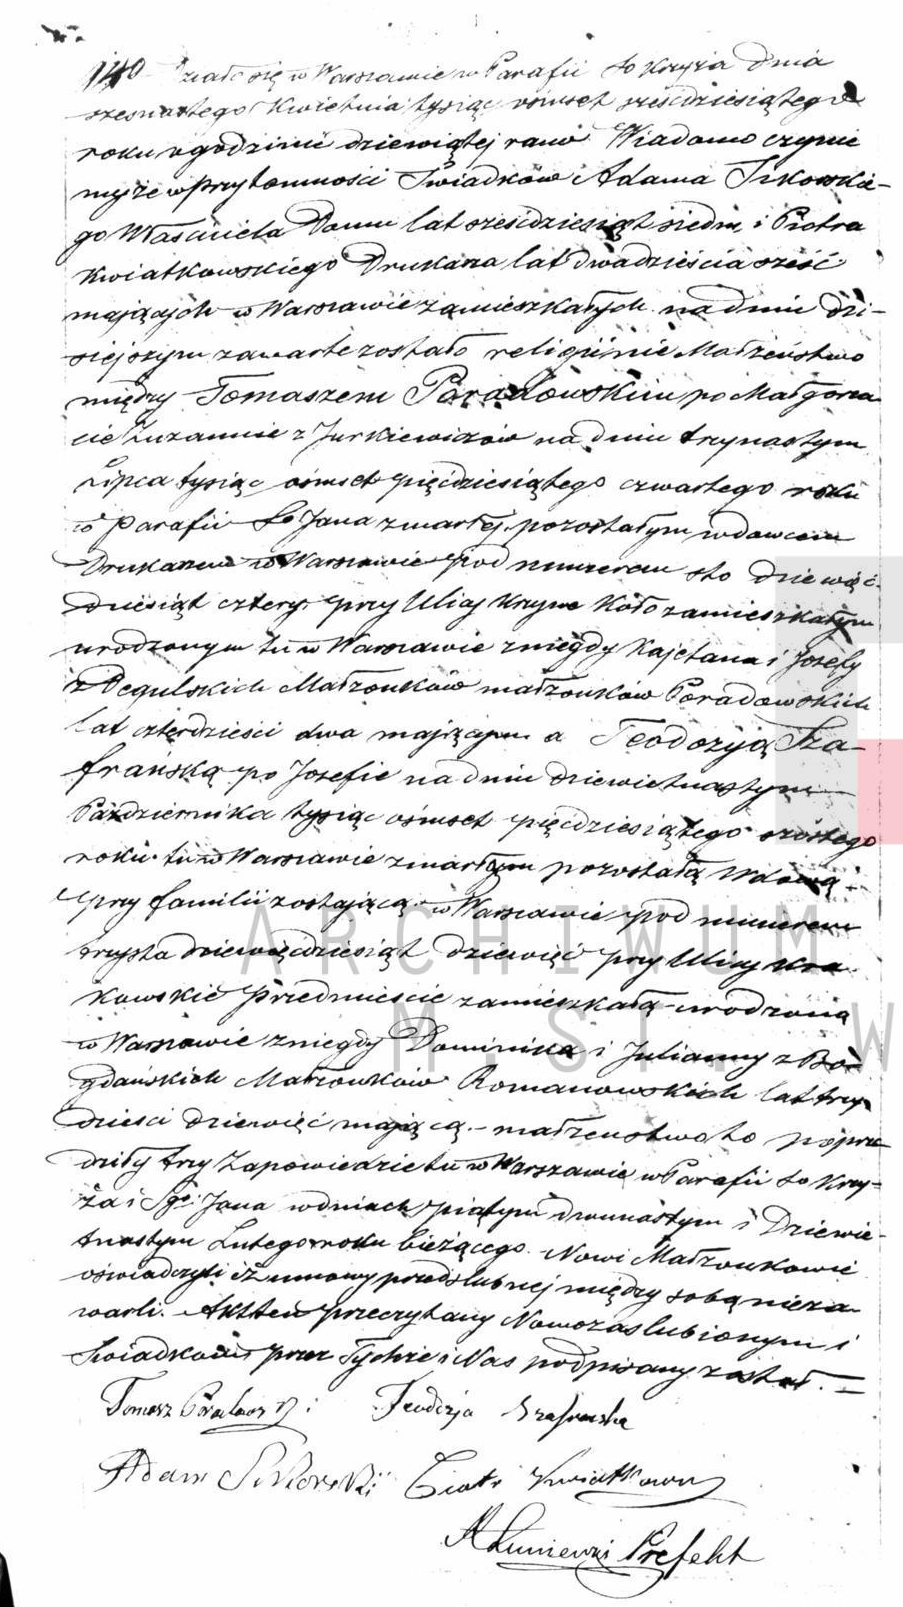 140 Działo się w Warszawie w Parafii So Krzyża dnia
szesnastego Kwietnia tysiąc ośmset sześćdziesiątego
roku o godzinie dziewiątej rano Wiadomo czynie
my że w przytomności Świadków Adama Sikorskie-
go Właściciela Domu lat sześćdziesiąt siedm i Piotra
Kwiatkowskiego Drukarza lat dwadzieścia sześć
mających w Warszawie zamieszkałych na dniu dzi-
siejszym zawarte zostało religijnie Małżeństwo
między Tomaszem Paradowskim po Małgorza
cie Zuzannie z Jurkiewiczów na dniu trzynastym
Lipca tysiąc ośmset pięćdziesiątego czwartego roku
w Parafii So Jana zmarłej pozostałym wdowcem
Drukarzem w Warszawie pod numerem sto dziewięć-
dziesiąt cztery przy Ulicy Krzywe Koło zamieszkałym
urodzonym tu w Warszawie z niegdy Kajetana i Józefy
z Małżonków małżonków Paradowskich
lat czterdzieści dwa mającym a Teodozyą Sza-
frańską po Józefie na dniu dziewietnastym
Października tysiąc ośmset pięćdziesiątego szóstego
roku tu w Warszawie zmarłym pozostałą Wdową
przy familii zostającą w Warszawie pod numerem
trzysta dziewięćdziesiąt dziewięć przy Ulicy Kra
kowskie Przedmieście zamieszkałą urodzoną
w Warszawie z niegdy Dominika i Julianny z Bo
gdańskich Małżonków Romanowskich lat trzy
dzieści dziewięć mającą.- małżeństwo to poprze
dziły trzy Zapowiedzie tu w Warszawie w Parafii So Krzy-
ża i Sgo Jana w dniach piątym dwunastym i Dziewie-
tnastym Lutego roku bieżącego. Nowi Małżonkowie
oświadczyli iż umowy przedślubnej między sobą nieza
warli. Akt ten przeczytany Nowozaślubionym i
Świadkom przez Tychże i Nas podpisany został.
Tomasz Teodozja Szafrańska
Adam Sikorski Piotr Kwiatkowski
Prefekt
ARCHIWUM
M ST. W